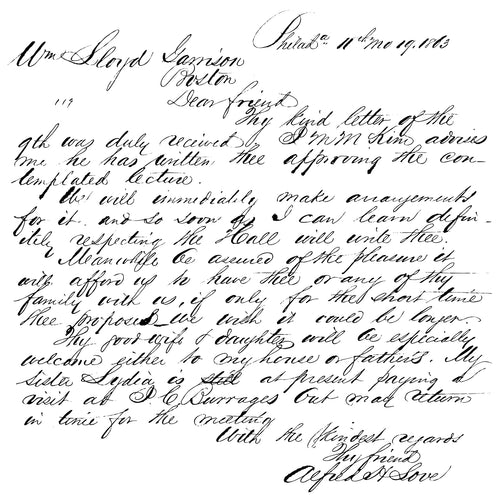 Philada 11th mo 19. 1863
Wm Lloyd Garrison
Boston
Dear friend
Thy kind letter of the
9th was duly received J M M Kim advises
me he has written thee approving the con-
templated lecture.
We will immediatly make arrangements
for it. and so soon as I can learn defin-
itely respecting the Hall will write thee.
Meanwhile be assured of the pleasure it
will afford us to have thee or any of thy
family with us, if only for the short time
thee proposes_ we wish it could be longer.
Thy good wife & daughter will be especially
welcome either to my house or father's. My
sister Lydia is still at present paying a
visit at J C Burrages but may return
in time for the meeting
With the kindest regards
Thy friend
Alfred H Love